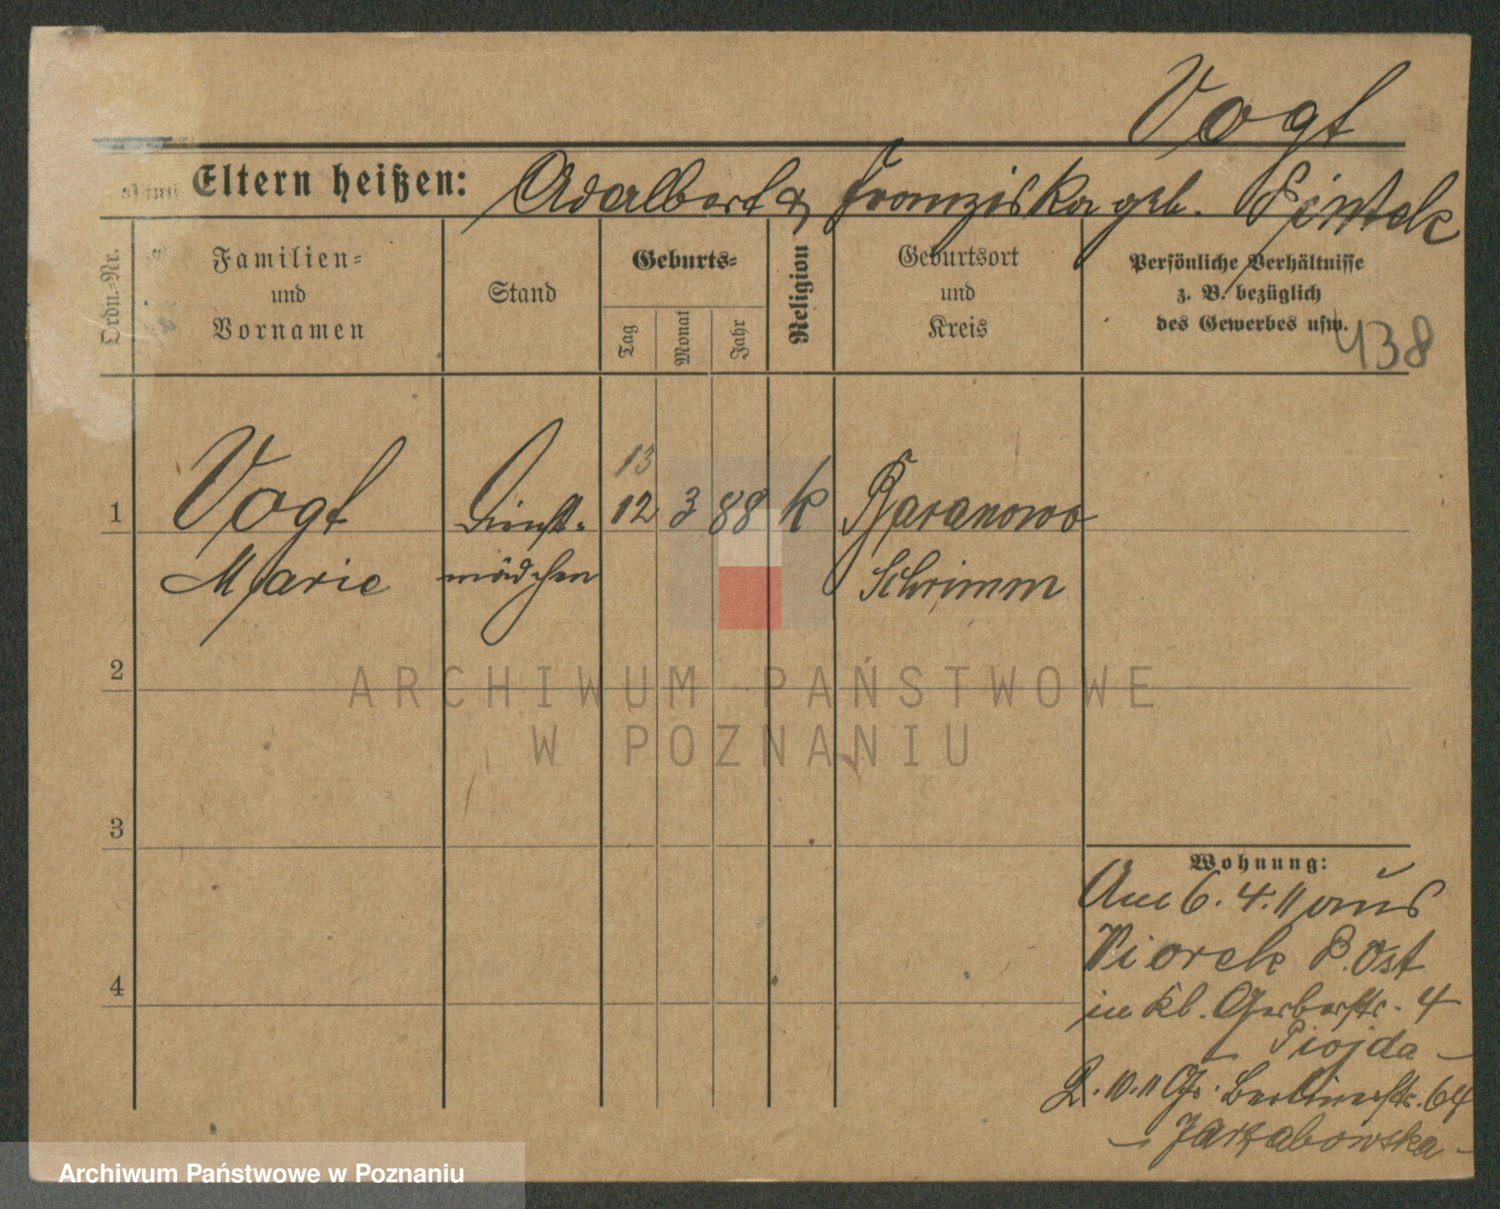 Vogt
Eltern heißen: Adalbert & Franziska geb. Pintek
Ordn.-Nr.
Familien-
und
Vornamen
Stand
Geburts-
Tag
Monat
Jahr
Religion
Geburtsort
und
Kreis
Persönliche Verhältnisse
z. B. bezüglich
des Gewerbes usw.
438
13
1 Vogt Dienst- 12 3 88 k Baranowo
Marie mädchen Schrimm
2
3
4
Wohnung:
Am 6. 4. 11 aus
Post
in Kl. Gerberstr. 4
Piojda
2. 10. 11 Gr. Berlinerstr. 64
Jarzabowska
ARCHIWUM PAŃSTWOWE
W POZNANIU
Archiwum Państwowe w Poznaniu